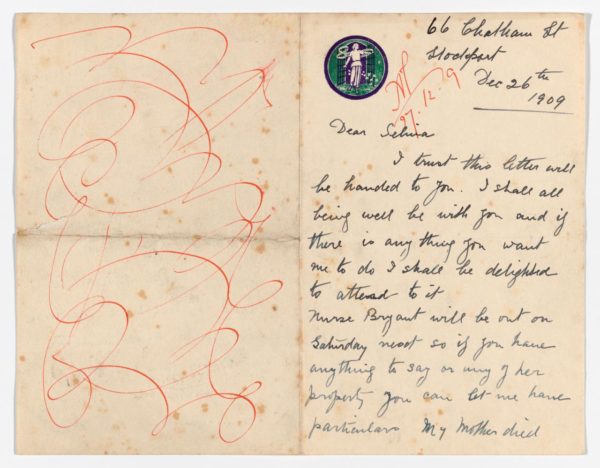 66 Chatham St
Stockport
Dec 26th
1909
27.12.9
Dear Selina
I trust this letter will
be handed to you. I shall all
being well be with you and if
there is anything you want
me to do I shall be delighted
to attend to it
Nurse Bryant will be out on
Saturday next so if you have
anything to say or any of her
property you can let me have
particulars My Mother died